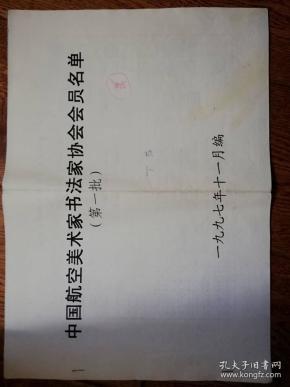 中国航空美术家书法家协会会员名单
（第一批）
一九九七年十一月编
孔夫子旧书网
www.kongfz.com